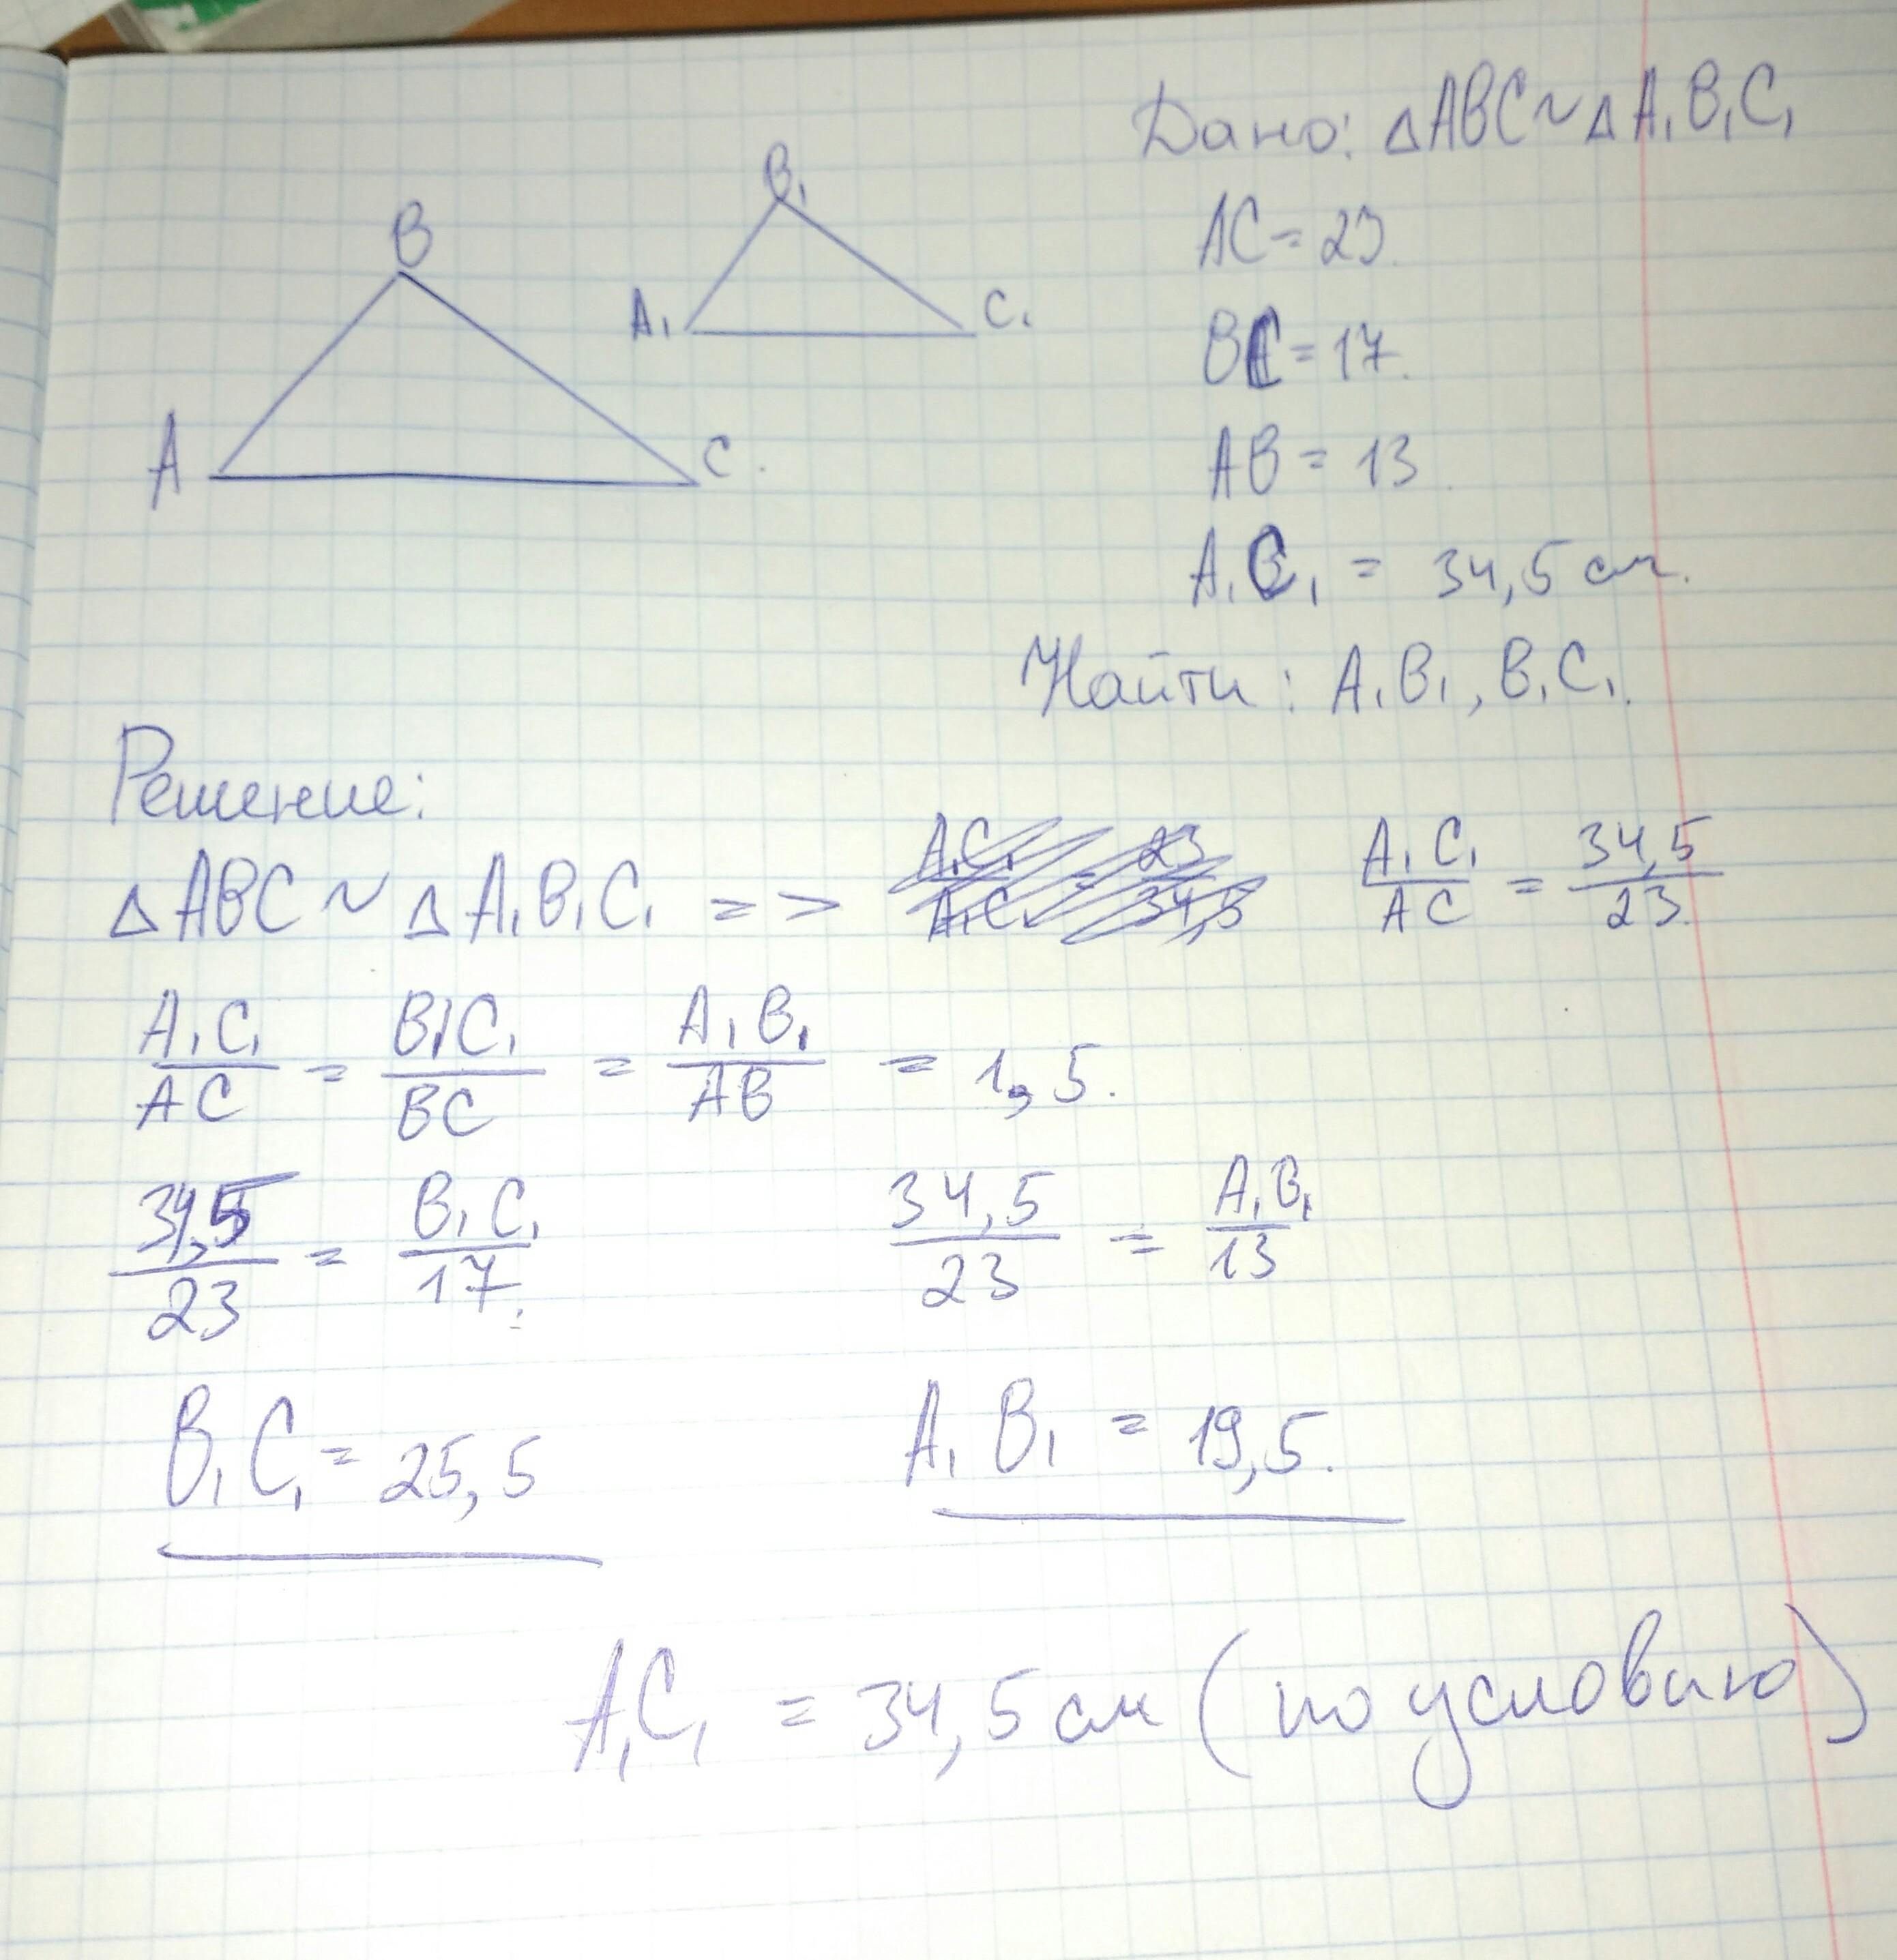 Дано: △ABC ~ △A₁B₁C₁
B
B₁
A
C.
A₁
C₁
AC = 23.
BC = 17.
AB = 13.
A₁C₁ = 34,5 см.
Найти: A₁B₁, B₁C₁.
Решение:
△ABC ~ △A₁B₁C₁ => A₁C₁/AC = 34,5/23.
A₁C₁/AC = B₁C₁/BC = A₁B₁/AB = 1,5.
34,5/23 = B₁C₁/17. 34,5/23 = A₁B₁/13
B₁C₁ = 25,5 A₁B₁ = 19,5.
A₁C₁ = 34,5 см (по условию)